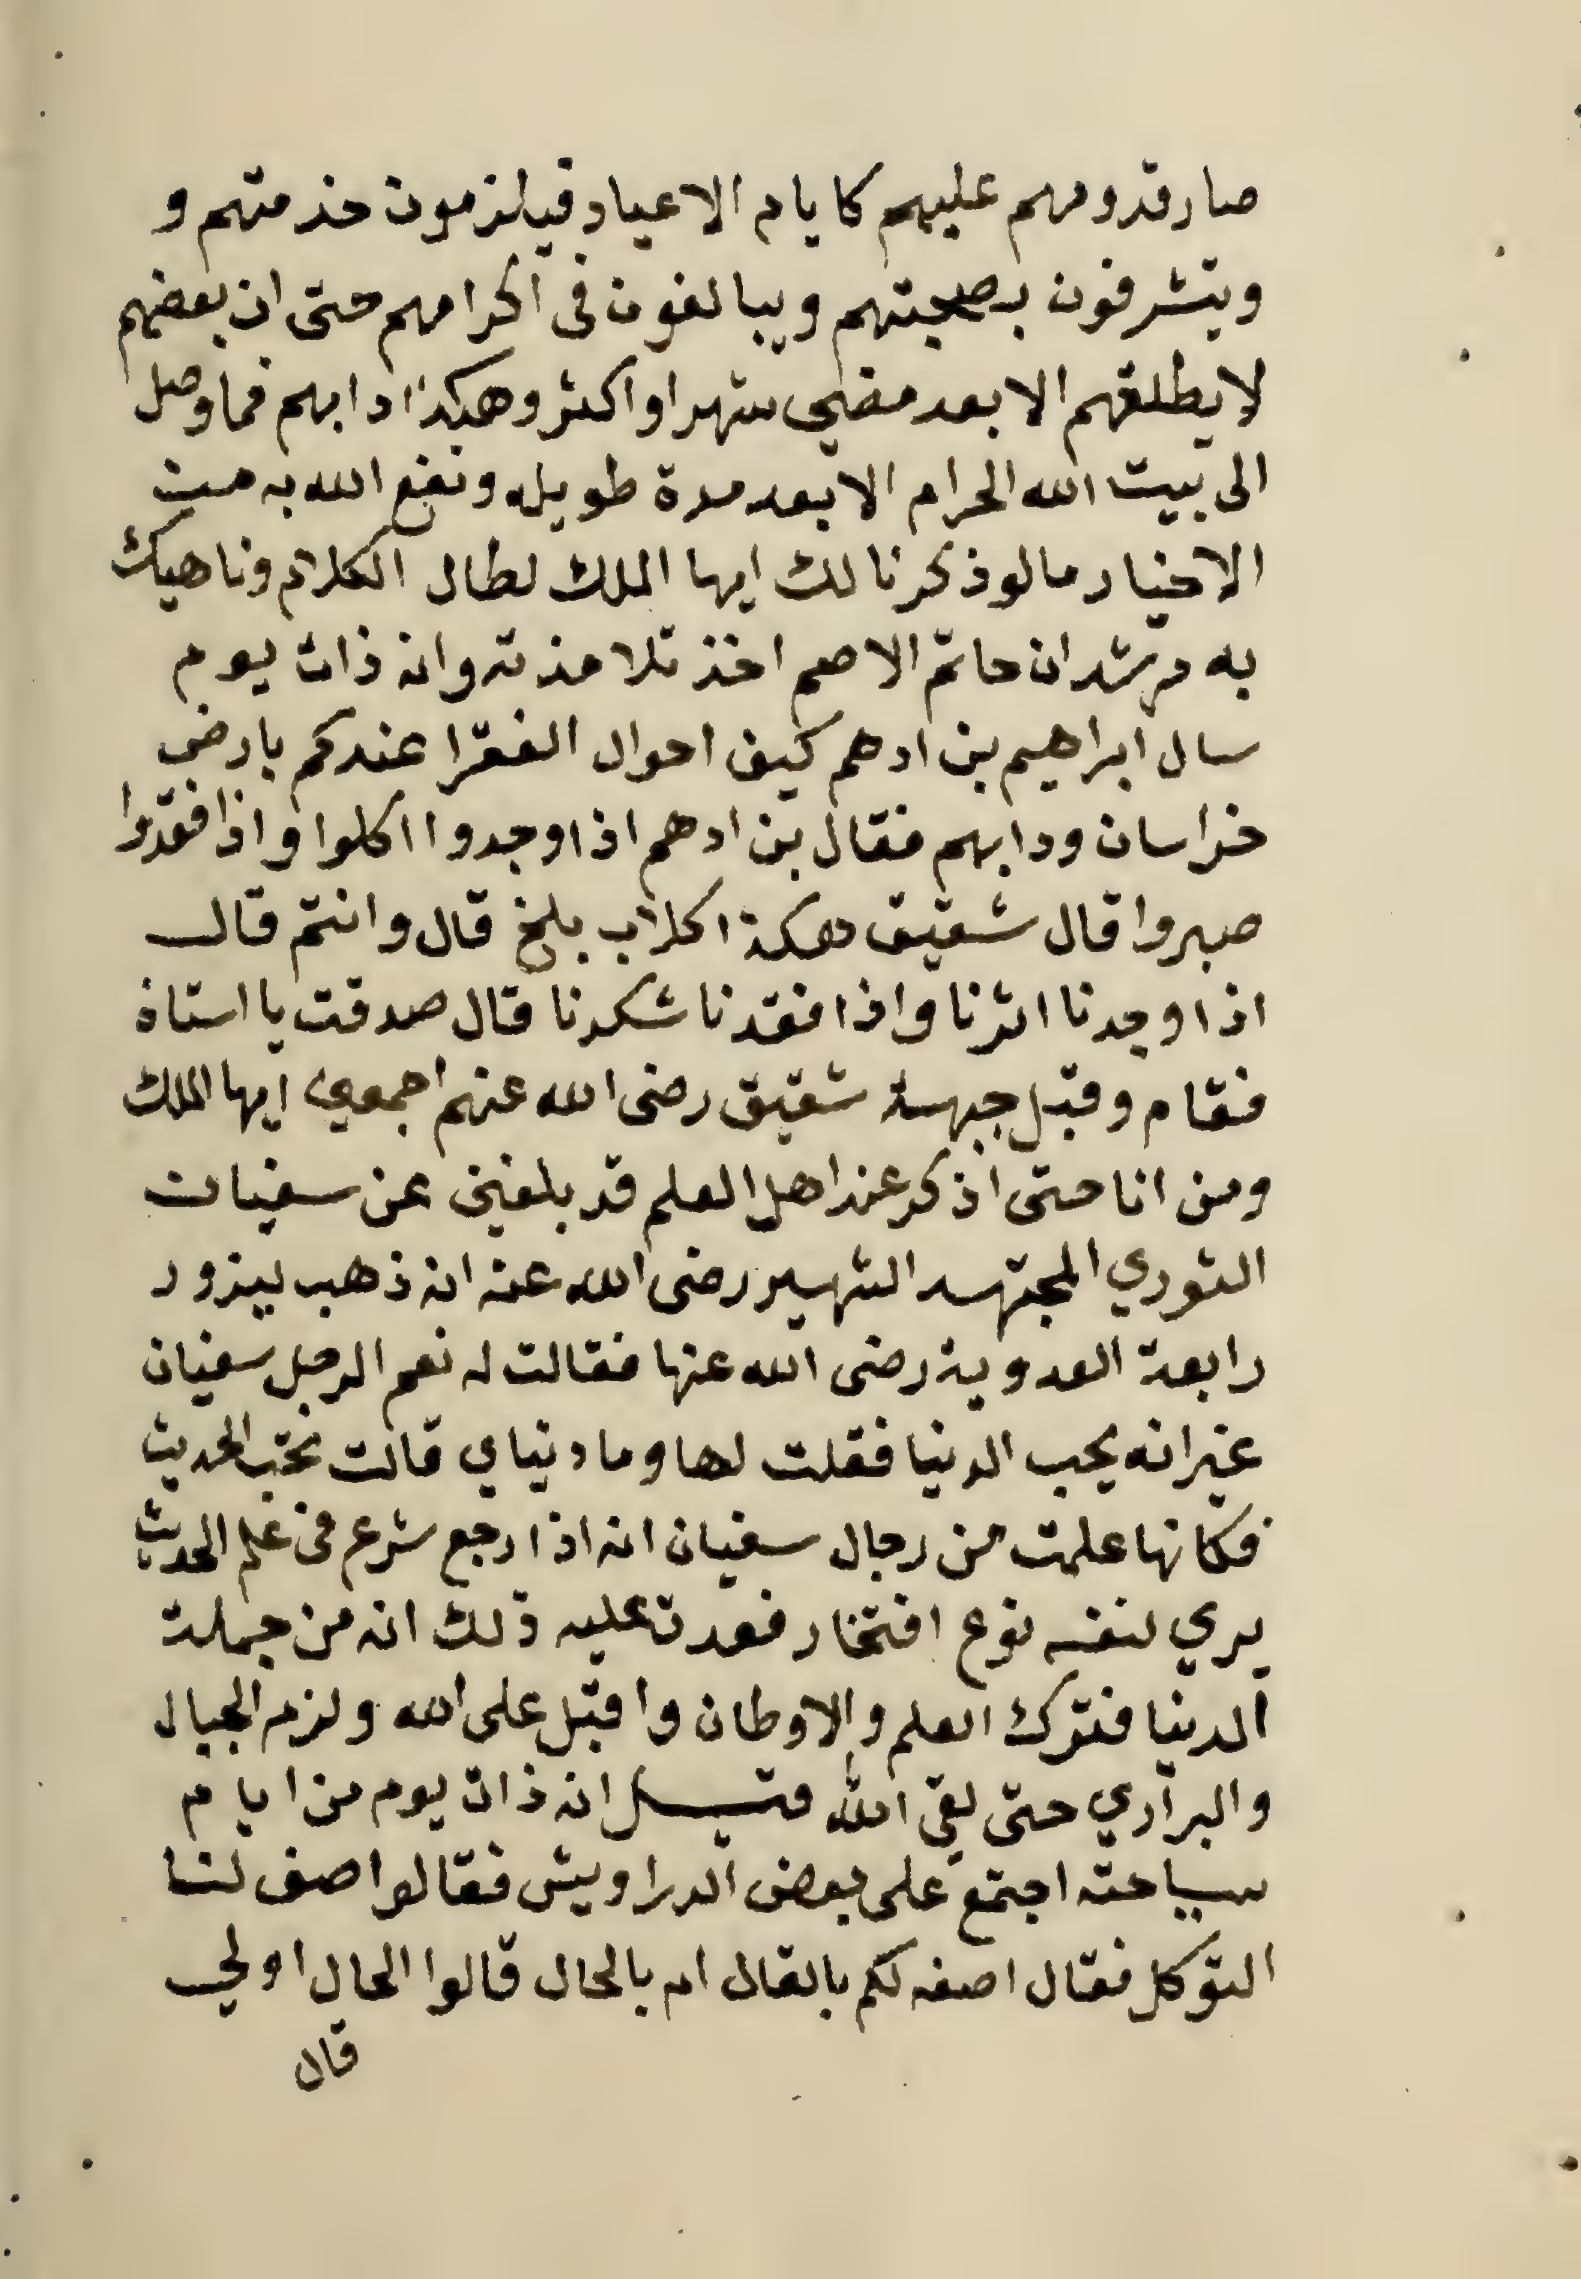 صار قدومهم عليهم كايام الاعياد فيلزمون خدمتهم و
ويتشرفون بصحبتهم ويبالغون في اكرامهم حتى ان بعضهم
لا يطلقهم الا بعد مضي شهرا واكثر وهكذا دابهم فما وصل
الى بيت الله الحرام الا بعد مدة طويله ونفع الله به من
الاخيار ما لو ذكرنا لك ايها الملك لطال الكلام وناهيك
به مرشد ان حاتم الاصم اخذ تلامذته وانه ذات يوم
سال ابراهيم بن ادهم كيف احوال الفقرا عندكم بارض
خراسان ودابهم فقال بن ادهم اذا وجدوا اكلوا واذا فقدوا
صبروا قال شقيق هكذا كلاب بلخ قال وانتم قال
اذا وجدنا اثرنا واذا فقدنا شكرنا قال صدقت يا استاذ
فقام وقبل جبهة شقيق رضى الله عنهم اجمعين ايها الملك
ومن انا حتى اذكر عند اهل العلم قد بلغني عن سفيان
الثوري المجتهد الشهير رضى الله عنه انه ذهب ليزور
رابعة العدوية رضى الله عنها فقالت له نعم الرجل سفيان
غير انه يحب الدنيا فقلت لها وما دنياي قالت تحب الحديث
فكانها علمت من رجال سفيان انه اذا رجع شرع في علم الحديث
يري لنفسه نوع افتخار فعدت عليه ذلك انه من جملت
الدنيا فترك العلم والاوطان واقبل على الله ولزم الجبال
والبراري حتى لقي الله قيل انه ذات يوم من ايام
سياحته اجتمع على بعض الدراويش فقالوا صف لنا
التوكل فقال اصفه لكم بالقال ام بالحال قالوا الحال اولي
قال